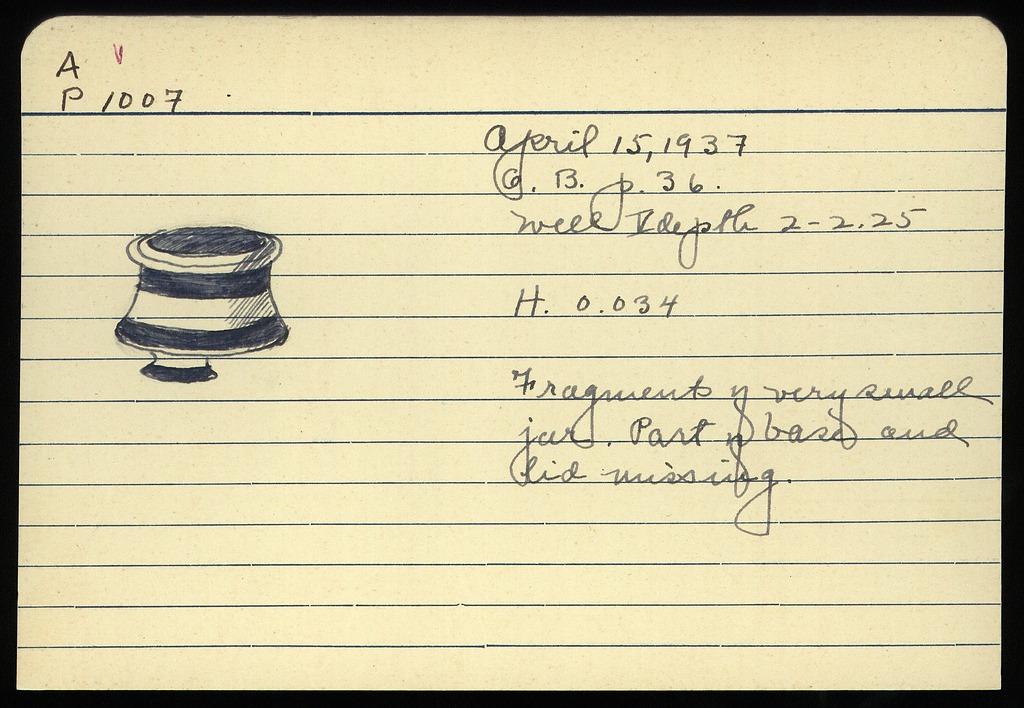 A V
P 1007
April 15, 1937
G. B. p. 36.
Well V depth 2-2.25
H. 0.034
Fragment of very small
jar. Part of base and
lid missing.